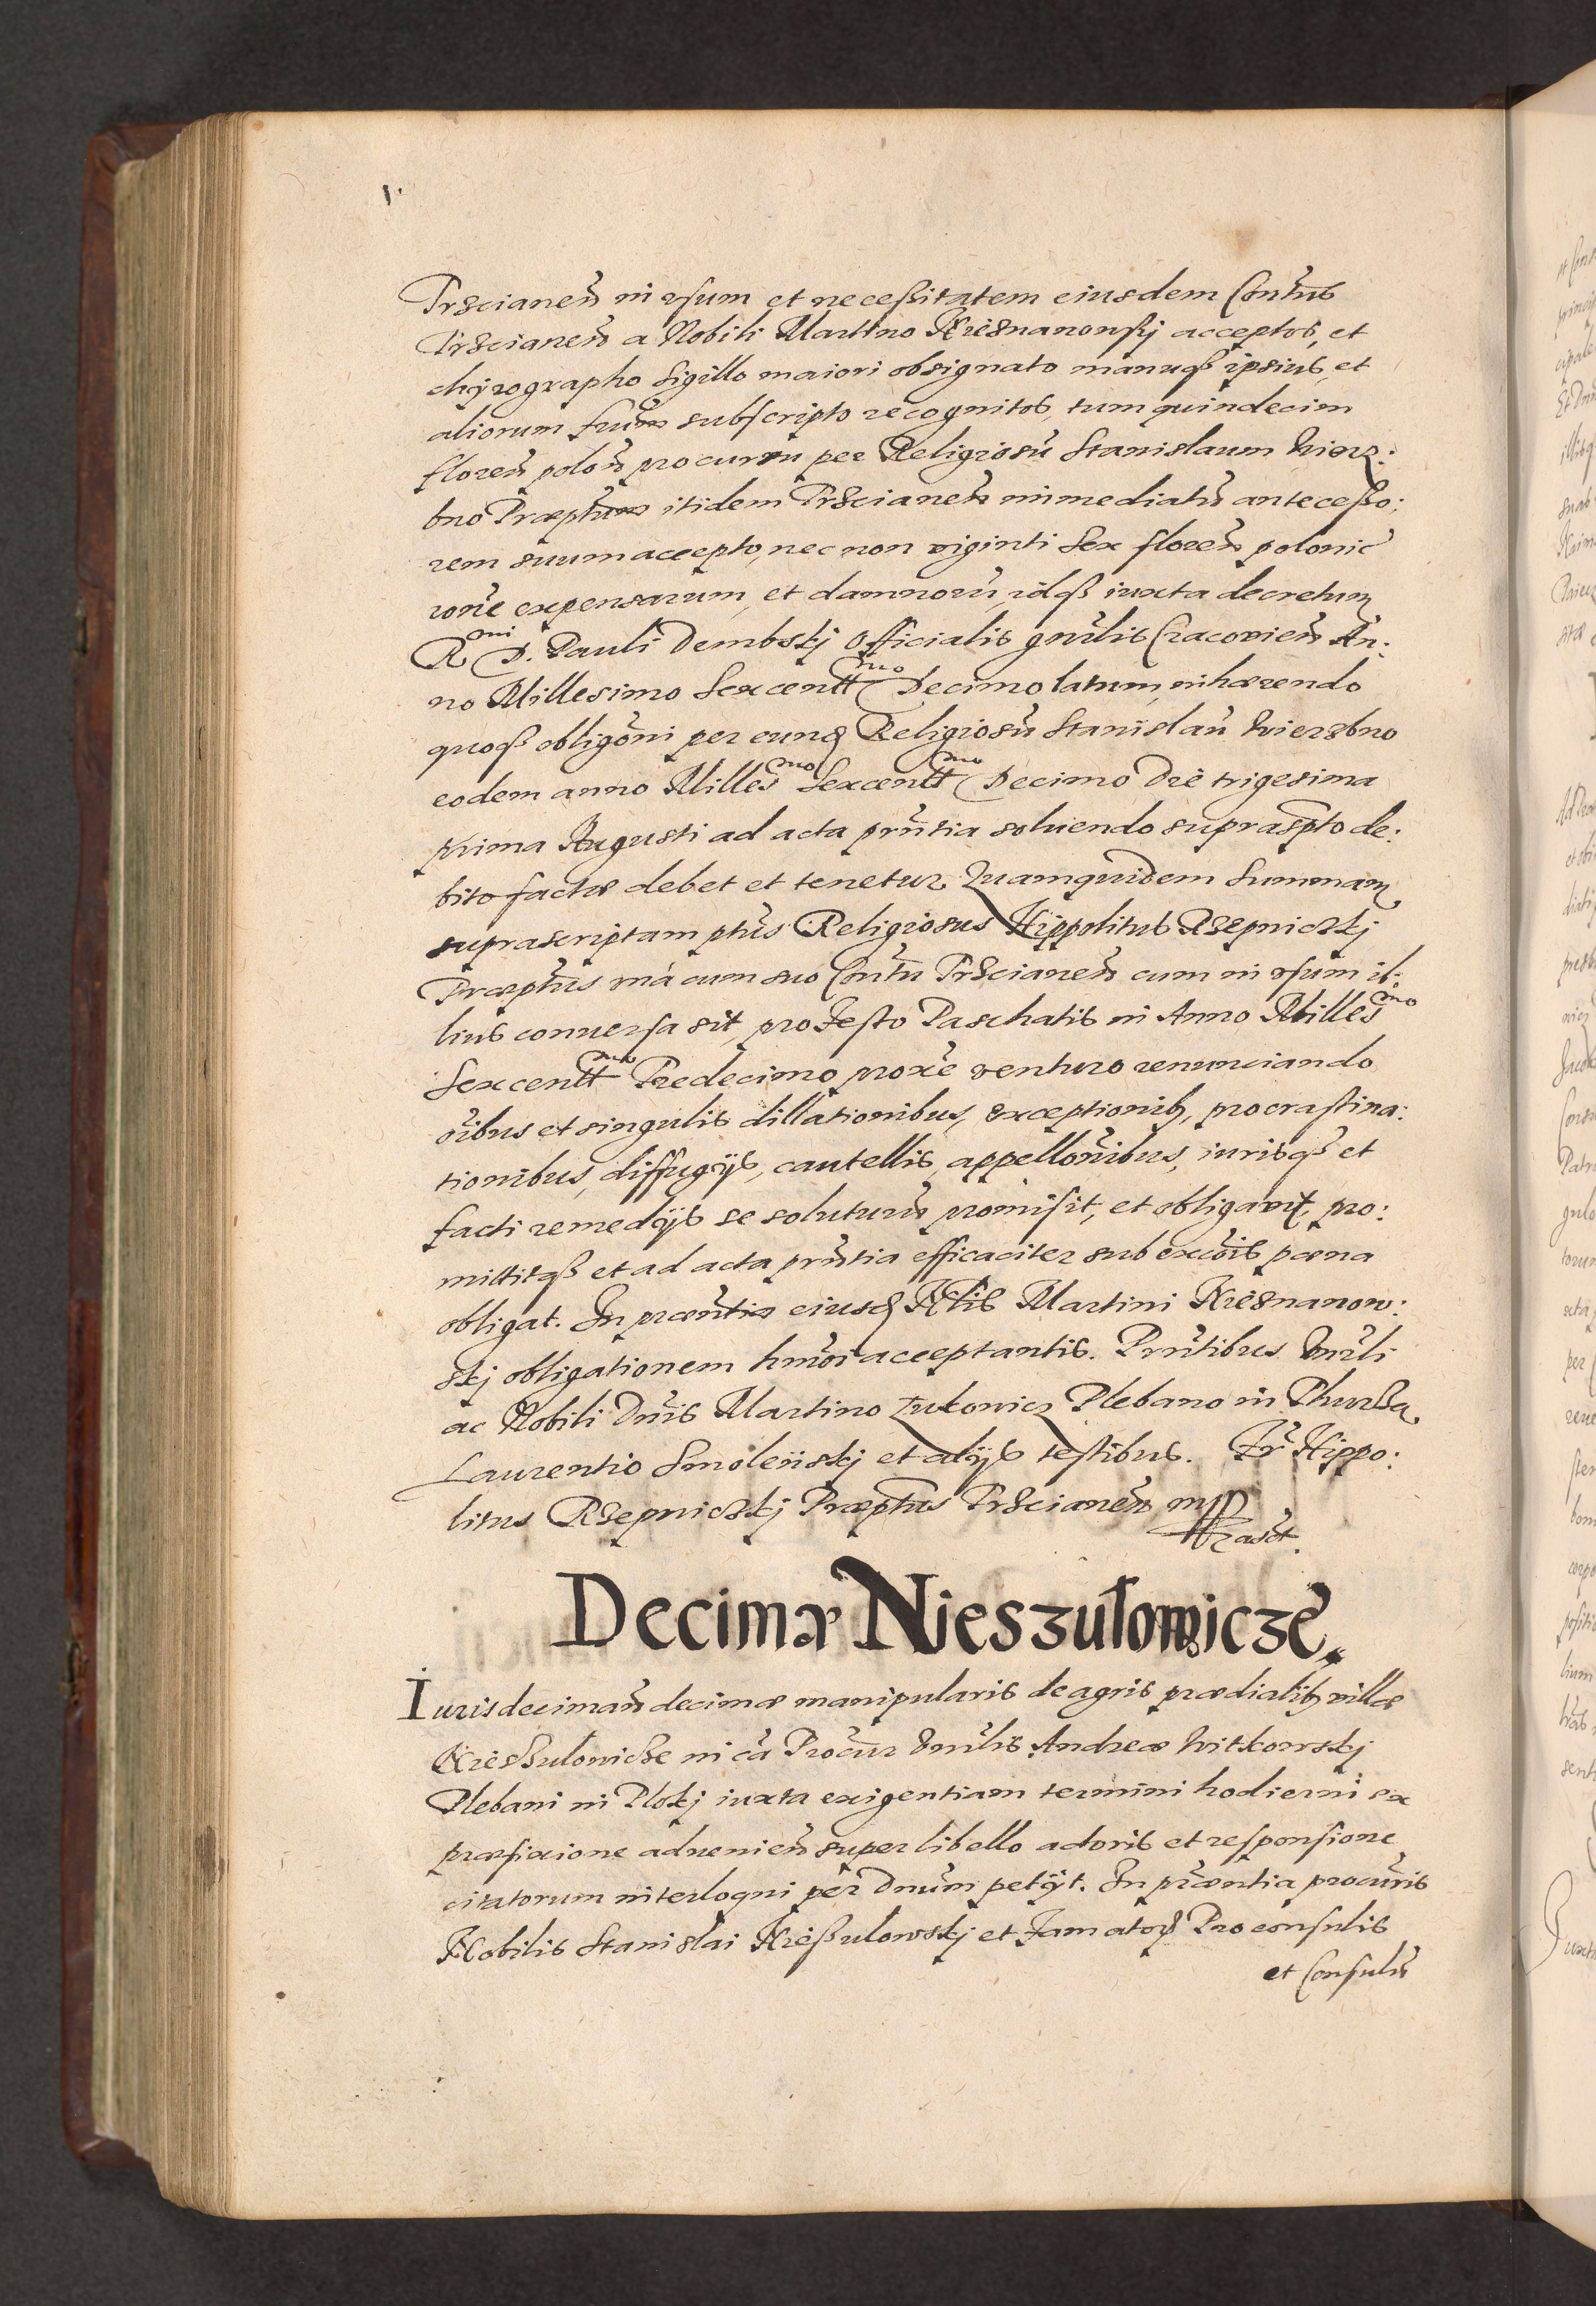 Trzcianen̄ in vsum et necessitatem eiusdem Contus
Trzcianen̄ a Nobili Martino Nieznanowskj acceptos, et
chyrographo sigillo maiori obsignato manuqꝫ ipsius, et
aliorum frum subscripto recognitos, tum quindecim
floren̄ polon̄ procurru per Religiosū Stanislaum Wierz:
bno Præptum itidem Trzcianen̄ immediatū antecesso:
rem suum accepto, nec non viginti sex floren̄ polonic̄
rone expensarum, et damnorū, idqꝫ iuxta decretum
Rmi D. Pauli Dembskj Officialis gnrlis Cracovien̄ An:
no Millesimo Sexcentt mo Decimo latum, inhærendo
quoqꝫ obligoni per eund Religiosū Stanislaū Wierzbno
eodem anno Milles mo Sexcentt mo Decimo Die trigesima
prima Augusti ad acta prntia soluendo suprascpto de:
bito factæ debet et tenetur. Quamquidem Summam
suprascriptam pttus Religiosus Hippolitus Rzepniczkj
Præptus vna cum suo Contu Trzcianen̄ cum in vsum il:
lius conuersa sit, pro Festo Paschatis in Anno Milles mo
Sexcentt mo Tredecimo proxe venturo renunciando
oibus et singulis dillationibus, exceptionibꝫ, procrastina:
tionibus, diffugijs, cautellis, appellonibus, iurisqꝫ et
facti remedijs se soluturū promisit, et obligavit, pro:
mittitqꝫ et ad acta prntia efficaciter sub excois pœna
obligat. In præntia eiusd Nblis Martini Nieznanow:
skj obligationem hmoi acceptantis. Prntibus Vnrli
ac Nobili Dnis Martino Zukowicz Plebano in
Laurentio Smoleńskj et alijs testibus. Fr Hippo:
litus Rzepniczkj Præptus Trzcianen̄ mpp
Decimæ Nieszułowicze.
Iuris deciman̄ decimæ manipularis de agris prædialibꝫ villæ
Nieszułowicze in ca Procur Vnrlis Andreæ Witkowskj
Plebani in Płokj iuxta exigentiam termini hodierni ex
præfixione advenien̄ super libello actoris et responsione
citatorum interloqui per Dnum petijt. In præntia procuris
Nobilis Stanislai Nieszułowskj et Famatoꝝ Proconsulis
et Consulū